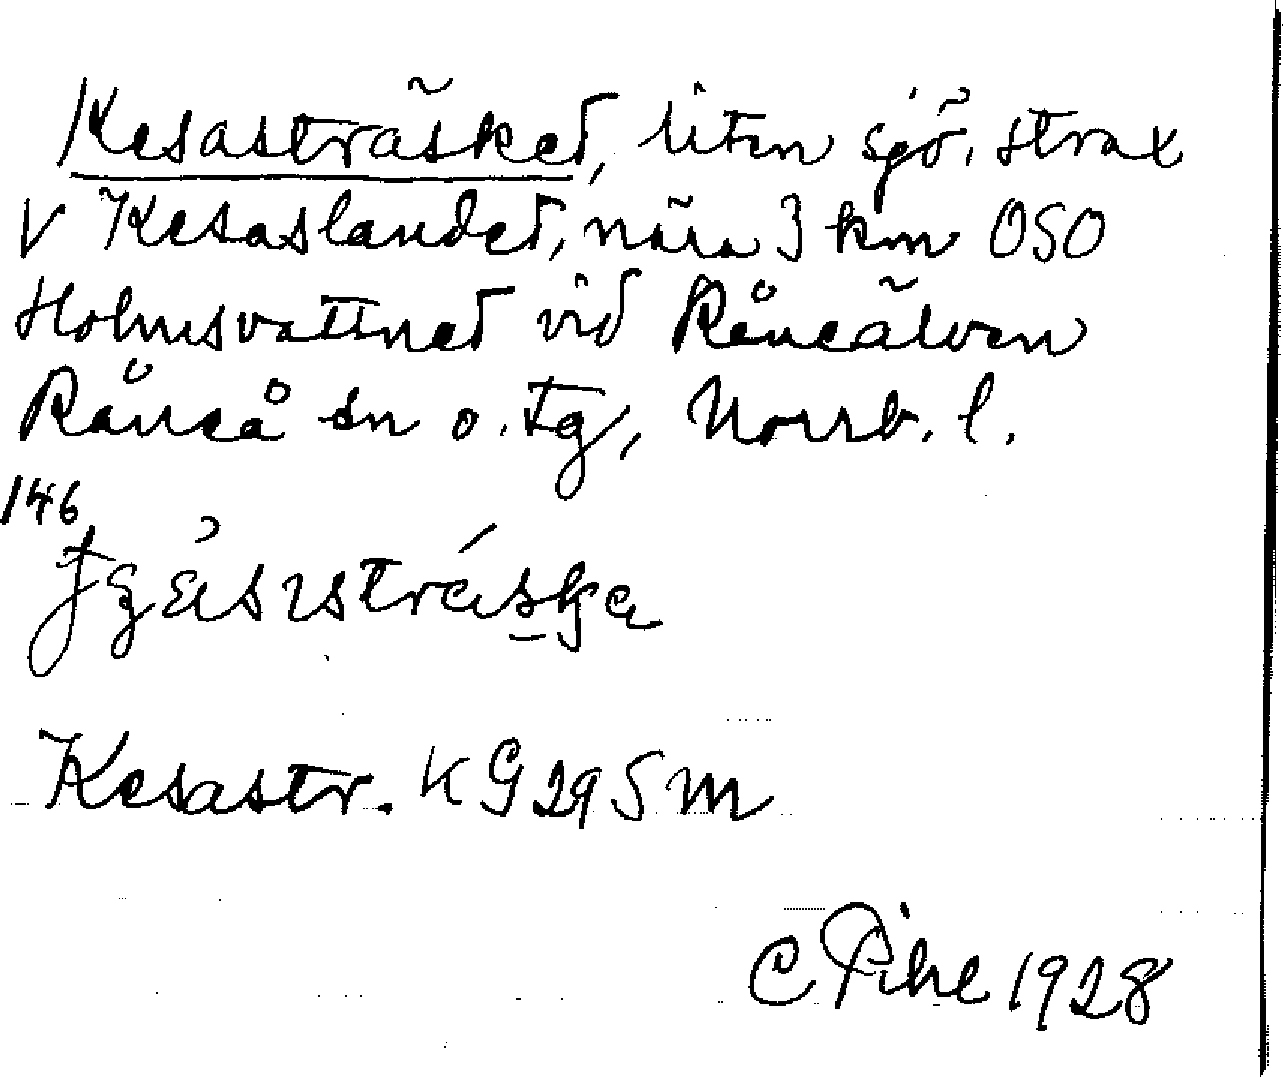 Kesasträsket, liten sjö, strax
V Kesaslandet, nära 3 km OSO
Holmsvattnet vid Råneälven
Råneå sn o. tg, Norrb. l.
146
Kesastr. KG 29 Sm
C Pihl 1928